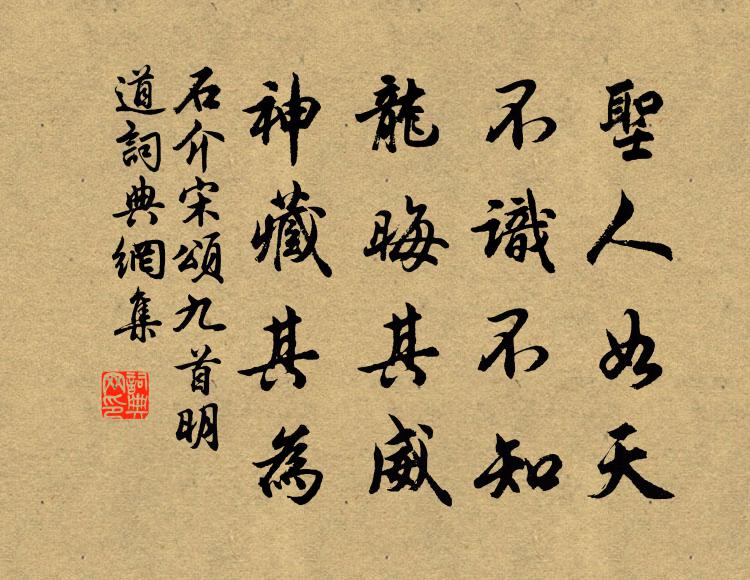 聖人如天
不識不知
龍晦其威
神藏其為
石介宋頌九首明
道詞典網集
詞典
网印